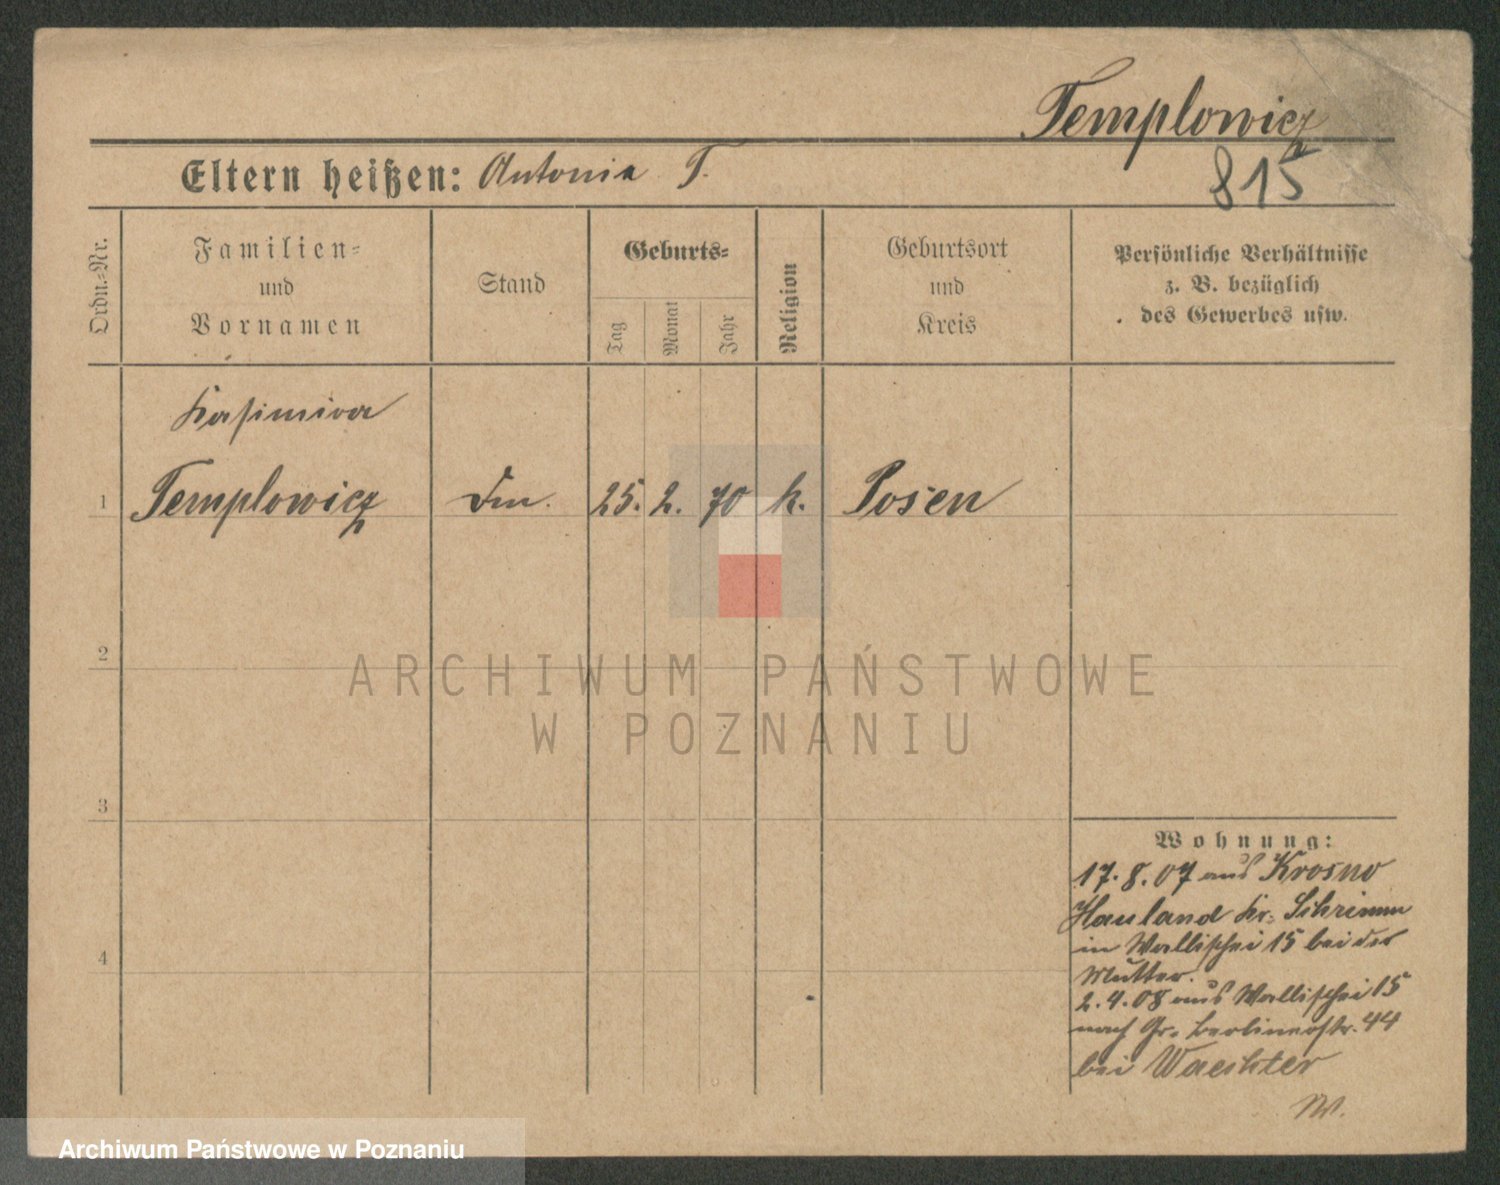 Templowicz
815
Eltern heißen: Antonia T.
Ordn.-Nr.
Familien-
und
Vornamen
Stand
Geburts-
Tag
Monat
Jahr
Religion
Geburtsort
und
Kreis
Persönliche Verhältnisse
z. B. bezüglich
des Gewerbes usw.
Kasimira
1 Templowicz 25. 2. 70 k. Posen
2
3
4
ARCHIWUM PAŃSTWOWE
W POZNANIU
Wohnung:
17.8.07 aus Krosno
Hauland Kr. Schrimm
in Wallischei 15 bei der
Mutter.
2.4.08 aus Wallischei 15
nach Gr. Berlinerstr. 44
bei Waechter
W.
Archiwum Państwowe w Poznaniu